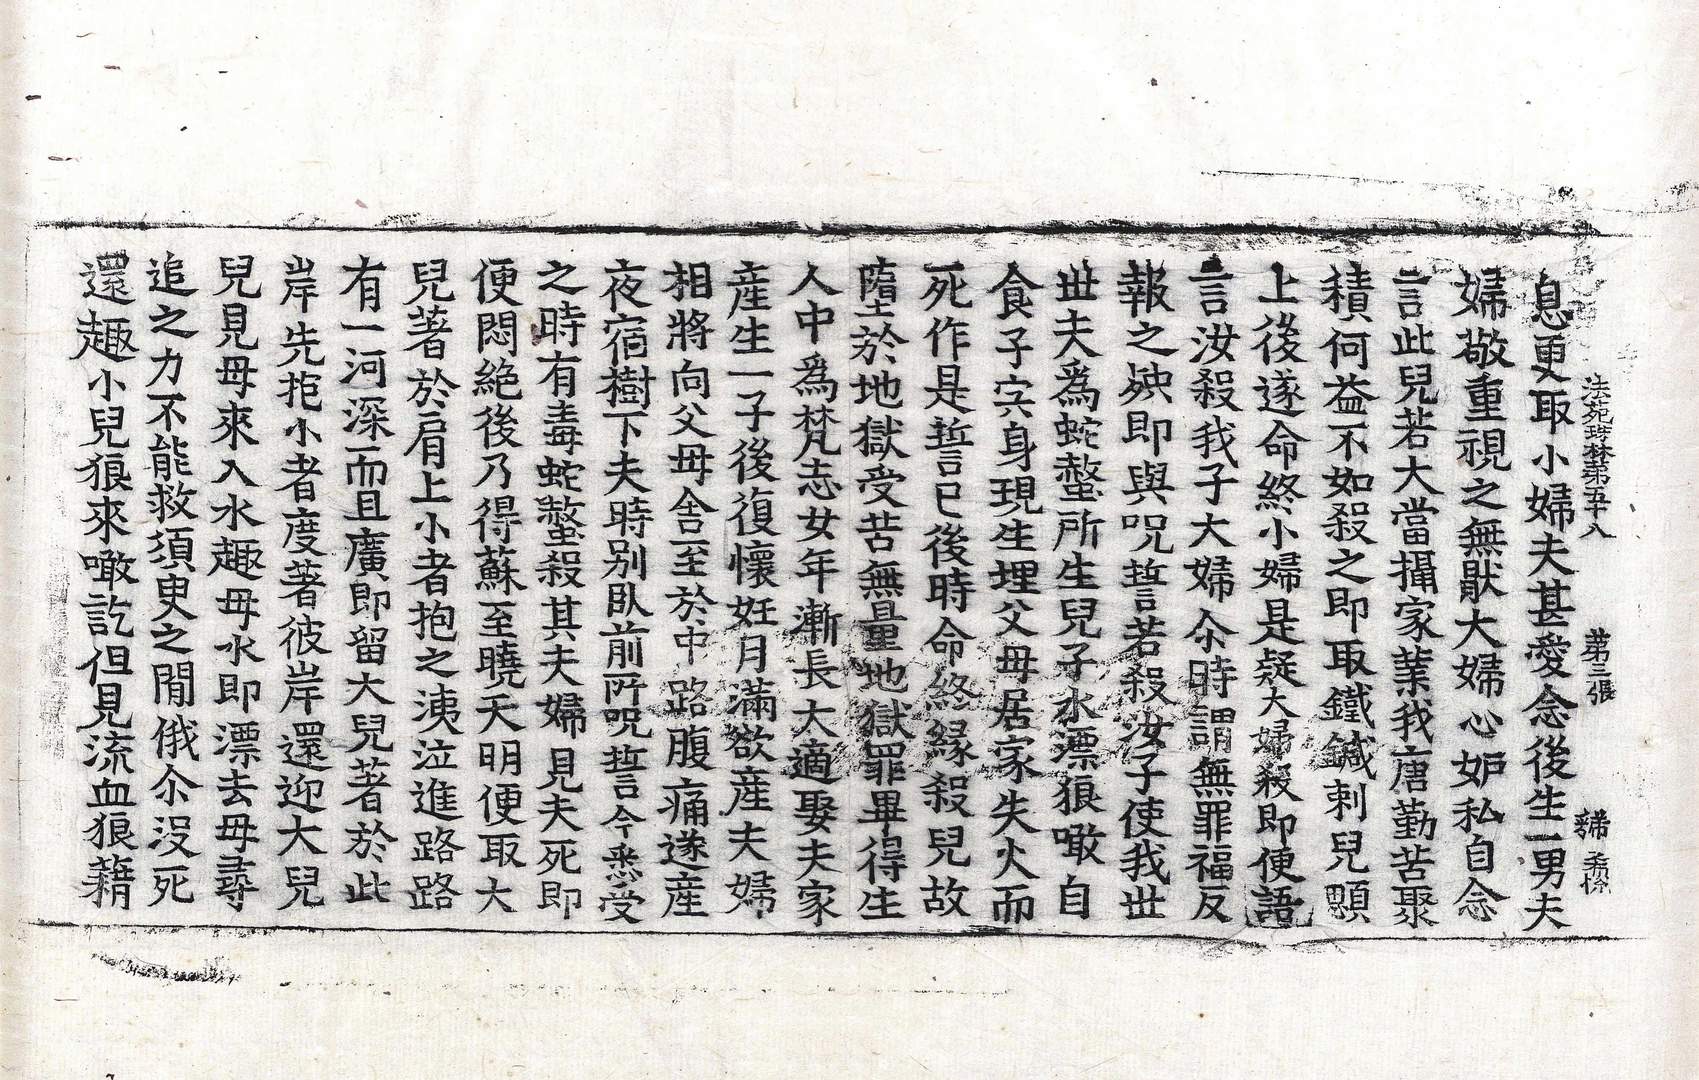 法苑珠林第五十八 第三張
息更取小婦夫甚愛念後生一男夫
婦敬重視之無猒大婦心妒私自念
言此兒若大當攝家業我唐勤苦聚
積何益不如殺之即取鐵鍼刺兒顖
上後遂命終小婦是疑大婦殺即便語
言汝殺我子大婦尒時謂無罪福反
報之殃即與呪誓若殺汝子使我世
世夫爲蛇螫所生兒子水漂狼噉自
食子宍身現生埋父母居家失火而
死作是誓已後時命終緣殺兒故
墮於地獄受苦無量地獄罪畢得生
人中爲梵志女年漸長大適娶夫家
産生一子後復懷妊月滿欲産夫婦
相將向父母舍至於中路腹痛遂産
夜宿樹下夫時别卧前所呪誓今悉受
之時有毒蛇螫殺其夫婦見夫死即
便悶絕後乃得蘇至曉天明便取大
兒著於肩上小者抱之洟泣進路路
有一河深而且廣即留大兒著於此
岸先抱小者度著彼岸還迎大兒
兒見母來入水趣母水即漂去母尋
追之力不能救須臾之閒俄尒没死
還趣小兒狼來噉訖但見流血狼籍